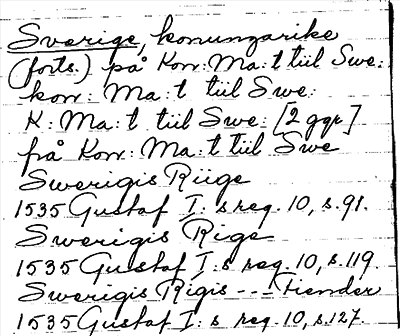 Sverige, konungarike
(forts.) på Kon: Ma:t tiil Swe:
kon: Ma:t tiil Swe:
K: Ma:t tiil Swe: [2 ggr]
från Kon: Ma:t tiil Swe
Swerigis Riige
1535 Gustaf I:s reg. 10, s. 91.
Swerigis Rige
1535 Gustaf I:s reg. 10, s. 119.
Swerigis Rigis --- Fiender
1535 Gustaf I:s reg. 10, s. 127.